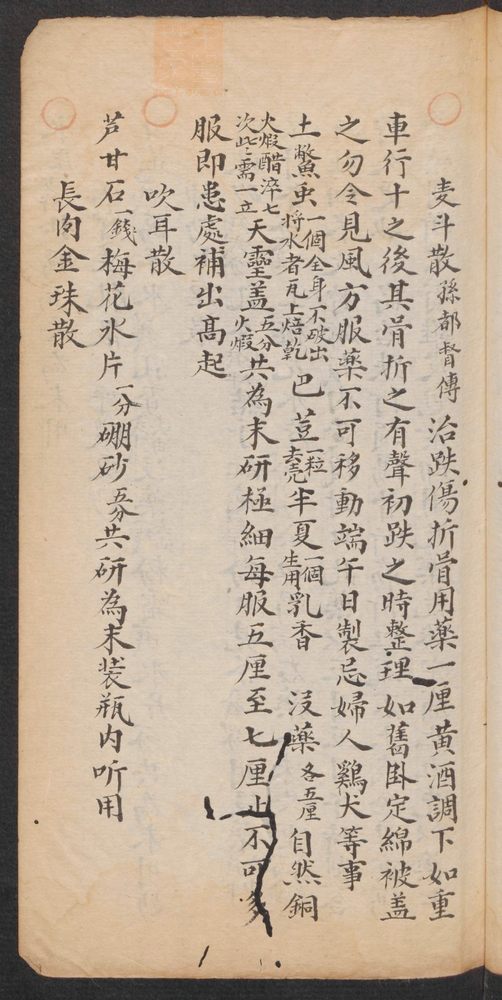 麦斗散孫都督傳 治跌傷折骨用藥一厘黄酒調下如重
車行十之後其骨折之有聲初跌之時整理如舊卧定綿被盖
之勿令見風方服藥不可移動端午日製忌婦人鷄犬等事
土鱉虫一個全身不破出将水者瓦上焙乾 巴荳一粒去壳半夏一個生用乳香 沒藥各五厘 自然銅
火煅醋淬七次此二需一立 天靈盖五分火煅共為末研極細每服五厘至七厘止不可多
服即患處補出髙起
吹耳散
芦甘石一錢梅花氷片一分硼砂五分共研為末装瓶内听用
長肉金珠散